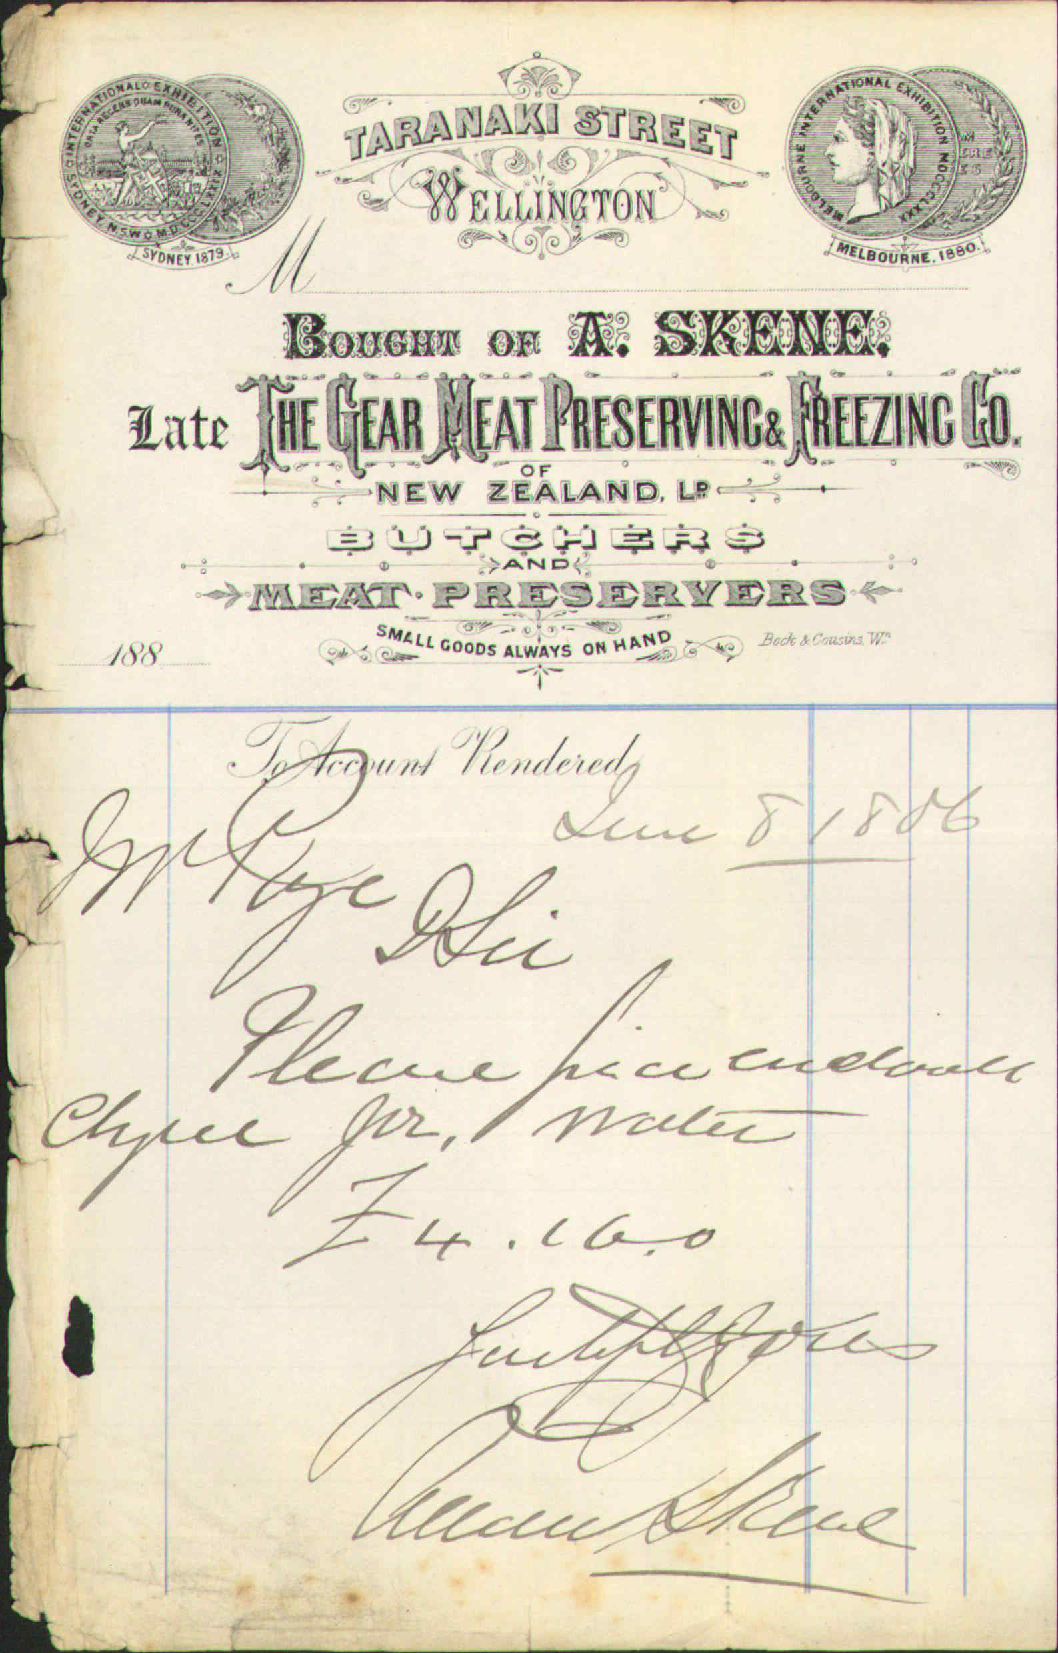 TARANAKI STREET
WELLINGTON
SYDNEY INTERNATIONAL EXHIBITION
N.S.W. M.D.CCC.LXXIX
SYDNEY, 1879.
MELBOURNE INTERNATIONAL EXHIBITION MDCCCLXXX
MELBOURNE, 1880.
M
BOUGHT OF A. SKENE.
Late THE GEAR MEAT PRESERVING & FREEZING CO.
OF
NEW ZEALAND, LD
BUTCHERS
AND
MEAT PRESERVERS
SMALL GOODS ALWAYS ON HAND
Bock & Cousins, Wn
188
To Account Rendered
June 8 1886
Mr Page
D Sir
Please find enclosed
Cheque for, Water
£4.16.0
Faithfully Yours
Allan Skene